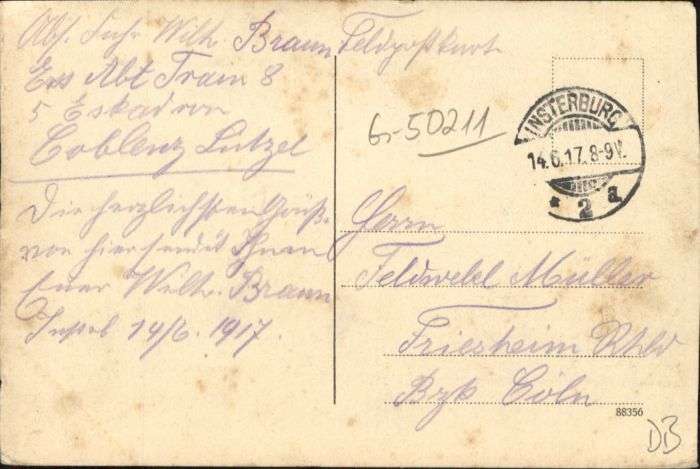 Abs. Fuhr Wilh Braun
Feldpostkarte
Ers Abt Train 8
5 Eskadron
Coblenz Lützel
Die herzlichsten Grüße
von hier sendet Ihnen
Wilh. Braun
14/6. 1917.
G-50211
INSTERBURG
14.6.17.8-9V.
* 2 a
Herrn
Feldwebel Müller
Friesheim Rhld
Bzk Cöln
88356
DB